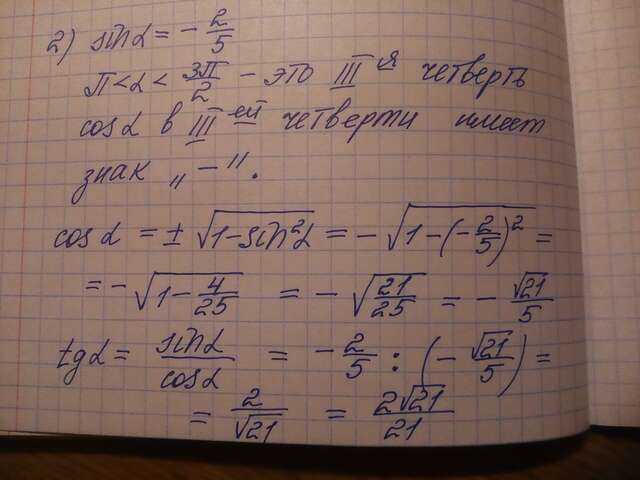 2) sinα = - 2/5
π < α < 3π/2 - это III я четверть
cosα в III ей четверти имеет
знак „ - ".
cos α = ± √(1-sin²α) = - √(1-(-2/5)²) =
= - √(1 - 4/25) = - √(21/25) = - √21/5
tgα = sinα/cosα = - 2/5 : (- √21/5) =
= 2/√21 = 2√21/21